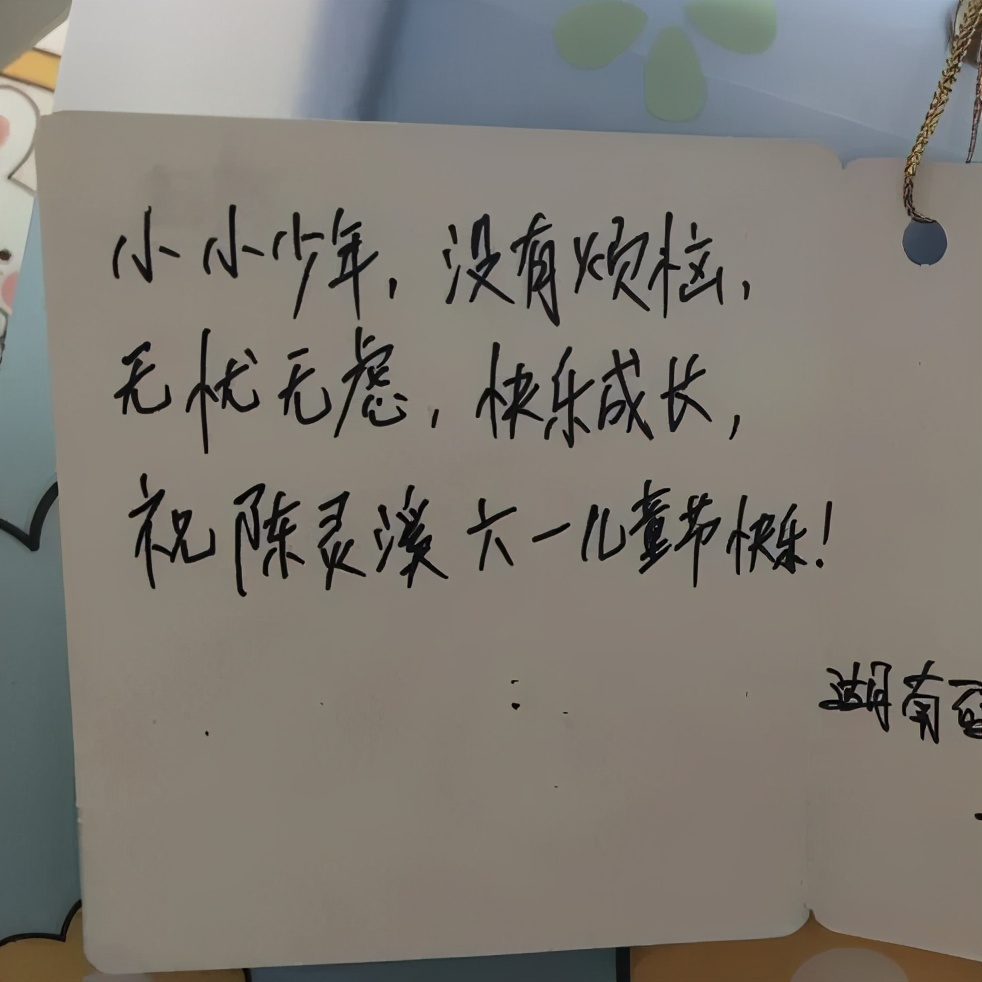 小小少年,没有烦恼,
无忧无虑,快乐成长,
祝陈灵溪六一儿童节快乐!
湖南